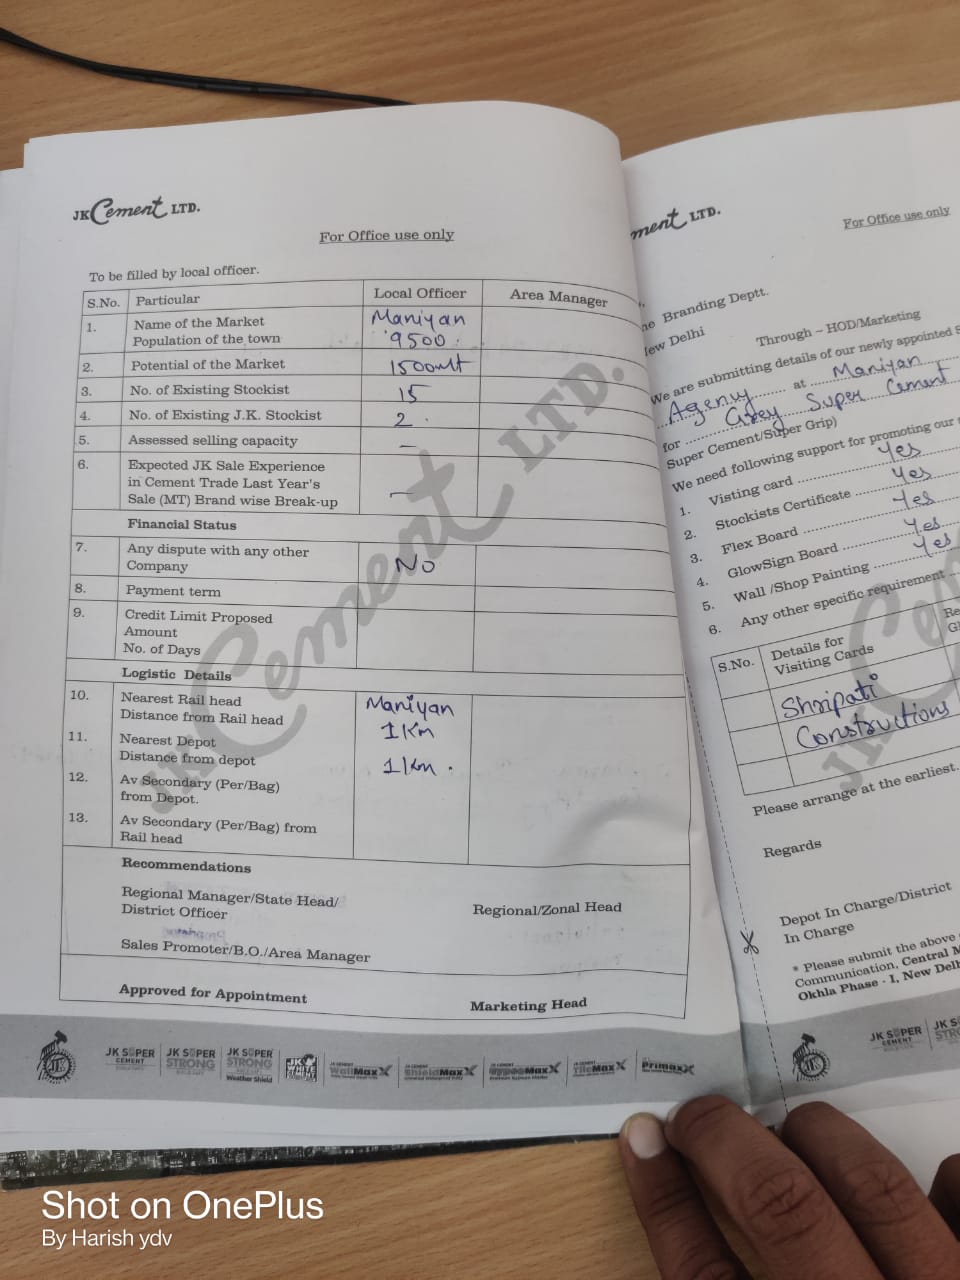 JK Cement LTD.
For Office use only
To be filled by local officer.
S.No. Particular Local Officer Area Manager
1. Name of the Market Maniyan
Population of the town 9500
2. Potential of the Market 1500mt
3. No. of Existing Stockist 15
4. No. of Existing J.K. Stockist 2
5. Assessed selling capacity –
6. Expected JK Sale Experience
in Cement Trade Last Year's
Sale (MT) Brand wise Break-up –
Financial Status
7. Any dispute with any other
Company NO
8. Payment term
9. Credit Limit Proposed
Amount
No. of Days
Logistic Details
10. Nearest Rail head Maniyan
Distance from Rail head 1Km
11. Nearest Depot
Distance from depot 1Km.
12. Av Secondary (Per/Bag)
from Depot.
13. Av Secondary (Per/Bag) from
Rail head
Recommendations
Regional Manager/State Head/
District Officer Regional/Zonal Head
Sales Promoter/B.O./Area Manager
Approved for Appointment Marketing Head
JK Cement LTD.
JK SUPER CEMENT JK SUPER STRONG JK SUPER STRONG Weather Shield JK WHITE WallMaxX ShieldMaxX GypsoMaxX TileMaxX PrimaxX
ment LTD.
For Office use only
he Branding Deptt.
New Delhi
Through – HOD/Marketing
We are submitting details of our newly appointed S
Agency at Maniyan
for Grey Super Cement
Super Cement/Super Grip)
We need following support for promoting our
1. Visting card Yes
2. Stockists Certificate Yes
3. Flex Board Yes
4. GlowSign Board Yes
5. Wall /Shop Painting Yes
6. Any other specific requirement
S.No. Details for
Visiting Cards
Shripati
Constructions
Please arrange at the earliest.
Regards
Depot In Charge/District
In Charge
* Please submit the above
Communication, Central M
Okhla Phase - I, New Delh
JK SUPER CEMENT JK S
Shot on OnePlus
By Harish ydv